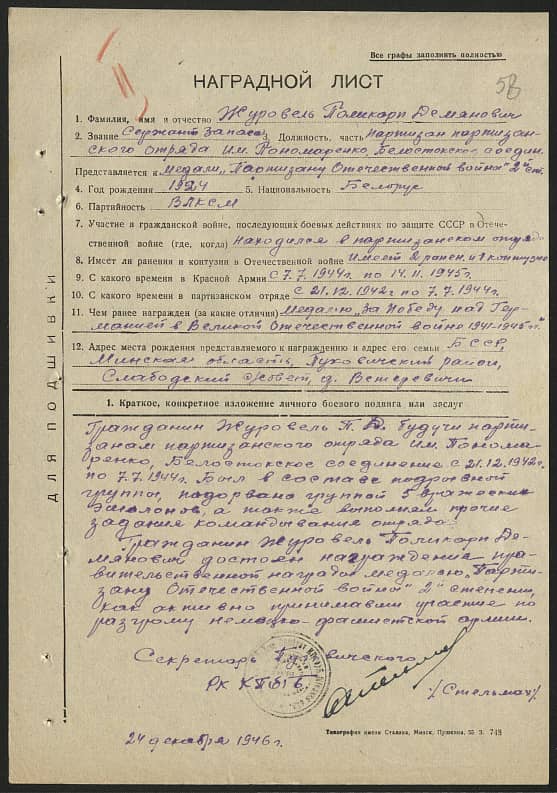 Все графы заполнить полностью
58
НАГРАДНОЙ ЛИСТ
1. Фамилия, имя и отчество Журовель Поликарп Демянович
2. Звание Сержант запаса 3. Должность, часть партизан партизан-
ского отряда им. Пономаренко, Белостокское соедин.
Представляется к медали „Партизану Отечественной война" 2й ст.
4. Год рождения 1924 5. Национальность Белорус
6. Партийность ВЛКСМ
7. Участие в гражданской войне, последующих боевых действиях по защите СССР в Отече-
ственной войне (где, когда) находился в партизанском отряде
8. Имеет ли ранения и контузии в Отечественной войне имеет 2 ранен. и 1 контузию
9. С какого времени в Красной Армии с 7.7.1944г. по 14.11.1945г.
10. С какого времени в партизанском отряде с 21.12.1942г по 7.7.1944г.
11. Чем ранее награжден (за какие отличия) Медалью „За победу над Гер-
манией в Великой Отечественной войне 1941-1945гг"
12. Адрес места рождения представляемого к награждению и адрес его семьи БССР,
Минская область, Пуховичский район,
Слабодский с/совет, д. Ветеревичи
ДЛЯ ПОДШИВКИ
1. Краткое, конкретное изложение личного боевого подвига или заслуг
Гражданин Журовель П. Д. будучи парти-
занам партизанского отряда им. Понома-
ренко, Белостокское соединение с 21.12.1942г.
по 7.7.1944г. Был в составе подрывной
группы, подорвано группой 5 вражеских
эшалонов, а также выполнял прочие
задания командования отряда.
Гражданин Журовель Поликарп Де-
мянович достоен награждение пра-
вительственной награды медалью „Парти-
зану Отечественной войны" 2й степени,
как активно принимавши участие по
разгрому немецко-фашистской армии.
Секретарь Пуховичского
РК КП(б)Б
/Стельмах/
24 декабря 1946г.
Типография имени Сталина, Минск, Пушкина, 55 З. 748